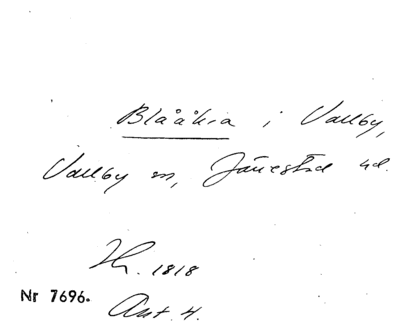 Blååkra i Vallby,
Vallby sn, Järrestad hd.
Hr. 1818
Nr 7696.
Ant 4.